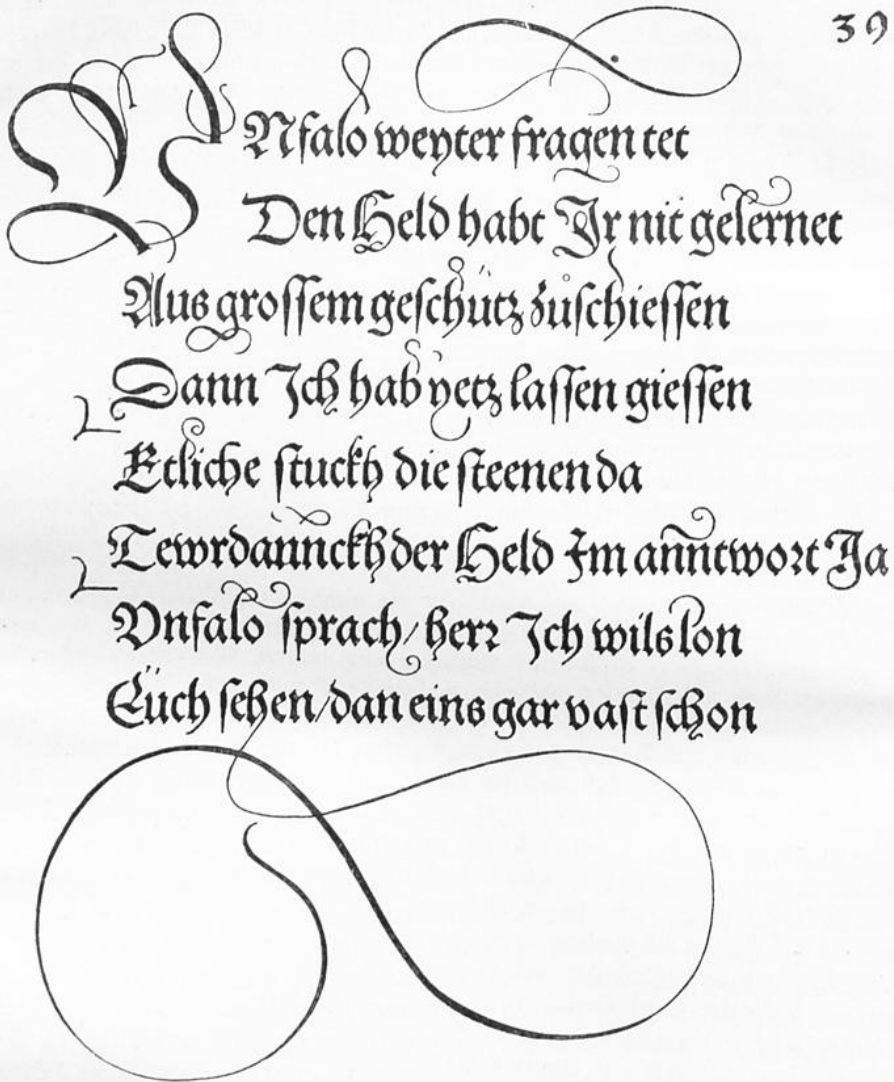 39
VNfalo weyter fragen tet
Den Held habt Ir nit gelernet
Aus grossem geschütz zůschiessen
Dann Ich hab yetz lassen giessen
Etliche stuckh die steenen da
Tewrdannckh der Held Im anntwort Ja
Vnfalo sprach/ herr Ich wils lon
Eüch sehen/dan eins gar vast schon